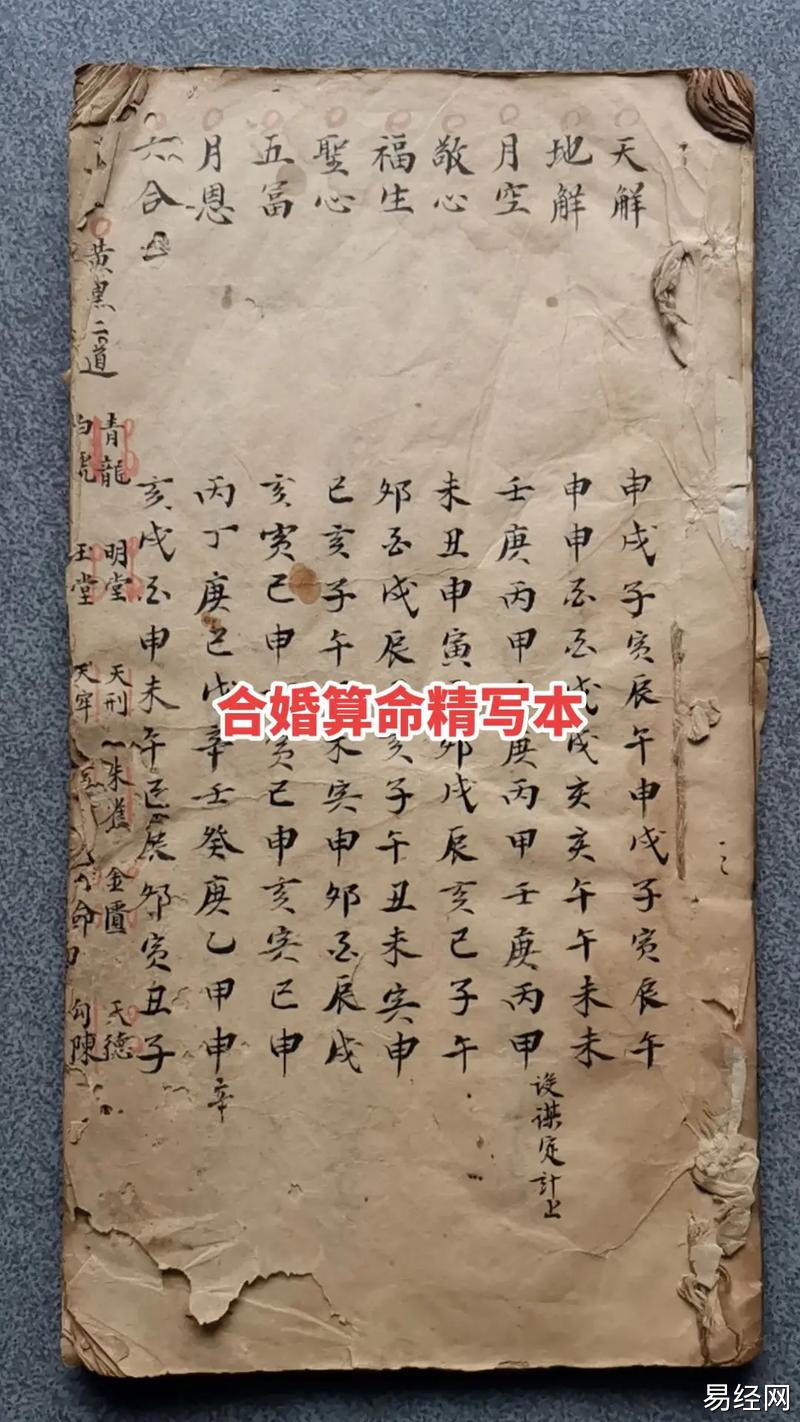 天解 申戌子寅辰午申戌子寅辰午
地解 申申酉酉戌戌亥亥午午未未
月空 壬庚丙甲庚丙甲壬庚丙甲
設謀定計上
敬心 未丑申寅卯戌辰亥巳子午
福生 夘酉戌辰亥子午丑未寅申
聖心 巳亥子午未寅申夘酉辰戌
五富 亥寅巳申寅巳申亥寅巳申
月恩 丙丁庚己戊辛壬癸庚乙甲申
辛
六合 亥戌酉申未午巳辰夘寅丑子
黄黒二道
青龍 明堂 天刑 朱雀 金匱 天德
白虎 玉堂 天牢 命 勾陳
合婚算命精写本
易经网